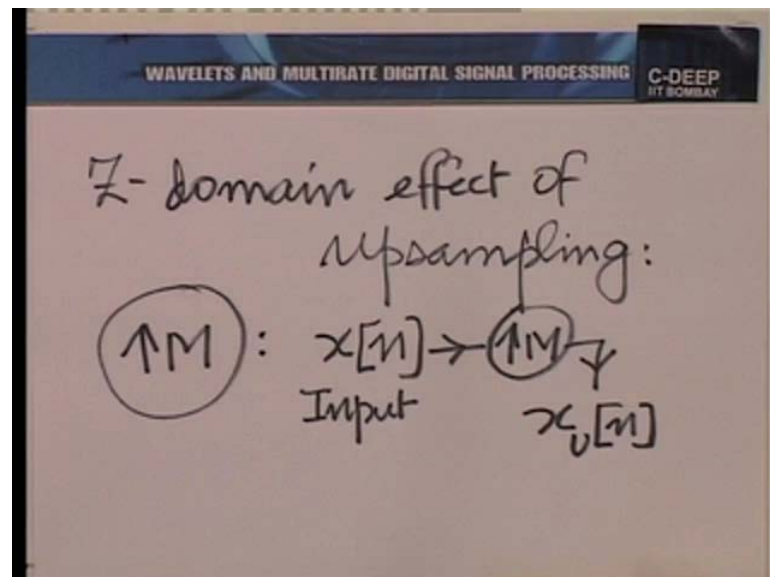 WAVELETS AND MULTIRATE DIGITAL SIGNAL PROCESSING
C-DEEP
IIT BOMBAY
Z-domain effect of
Upsampling:
↑M : x[n] → ↑M →
Input x_U[n]